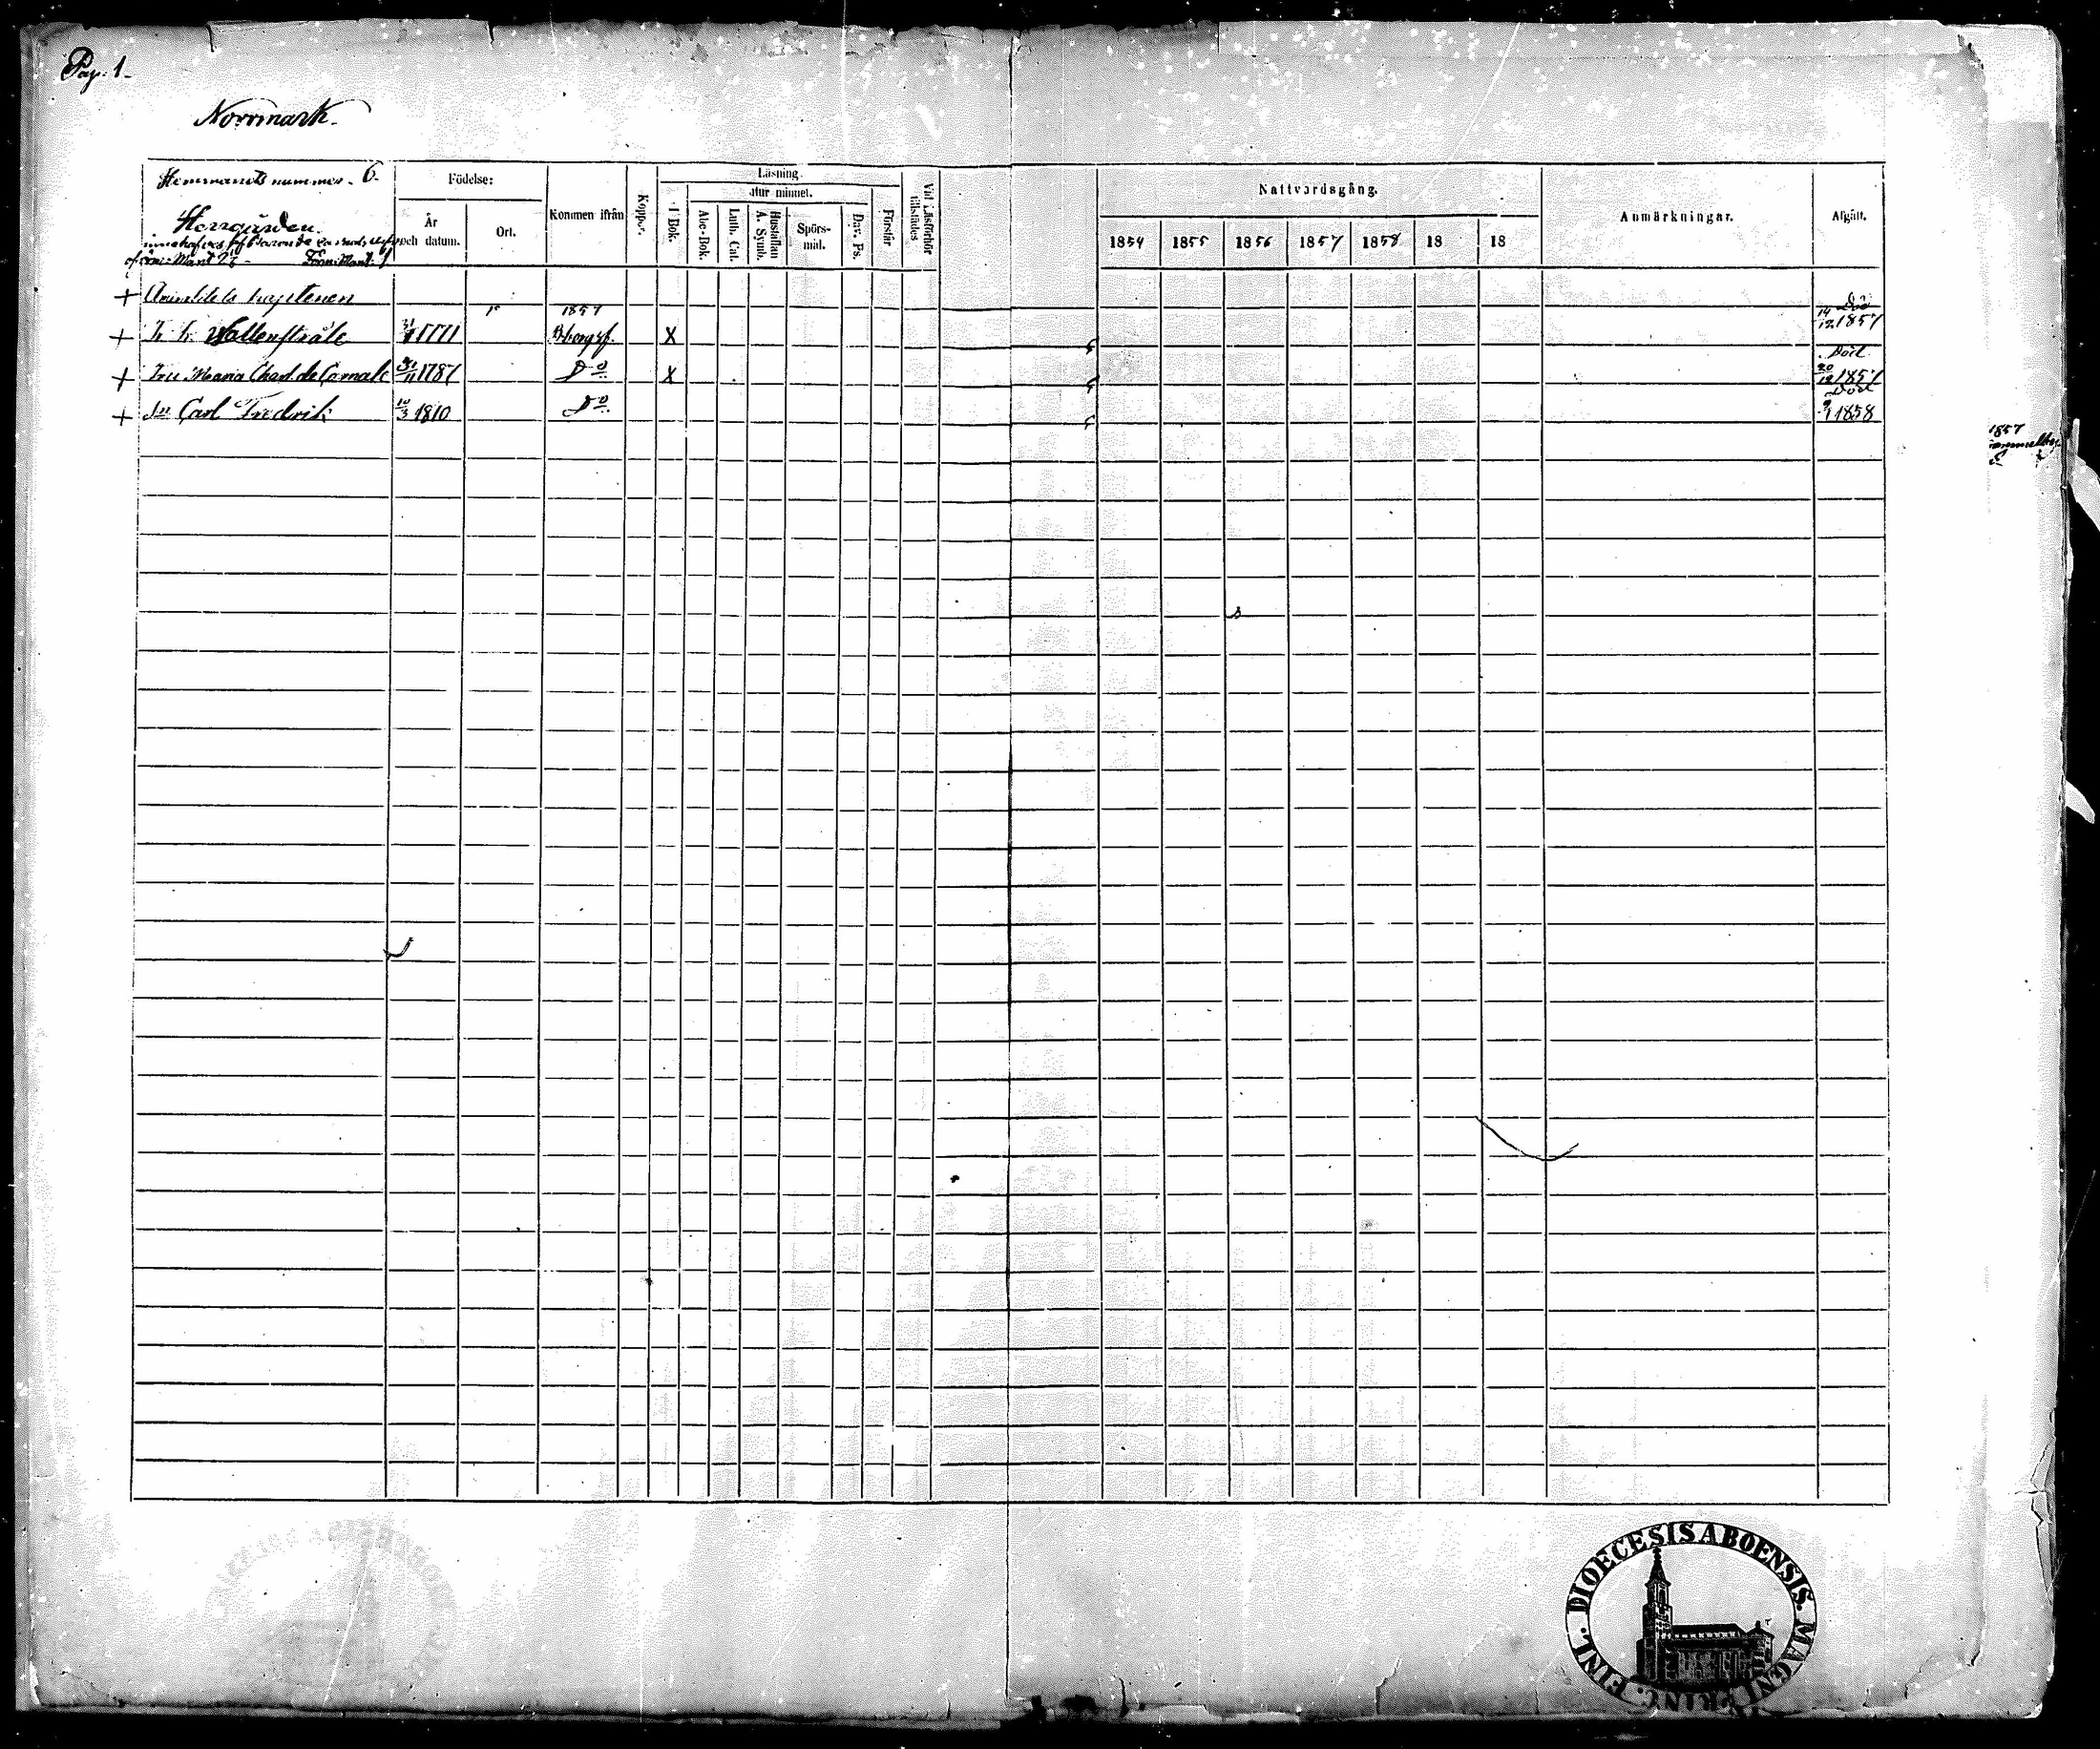 Pag. 1.
Norrmark.
Hemmanets nummer. 6.
Herrgården.
Födelse:
År och datum.
Ort.
Kommen ifrån
Koppor.
Läsning.
I Bok.
utur minnet.
Abc-Bok.
Luth. Cat.
Hustaflan A. Symb.
Spörs-mål.
Dav. Ps.
Förstår
Vid Läsförhör tillstädes
Nattvardsgång.
1854 1855 1856 1857 1858 18 18
Anmärkningar.
Afgått.
+ Kaptenen
1857 Död
+ Wallenstråle 1771 X 14/12 1857
+ Fru Maria Charl. de Carnall 1787 Do X Död 20/12 1857
+ Sn Carl Fredrik 10/3 1810 Do Död 1858
1857
DIOECESIS ABOENSIS. MAGNI PRINC. FINL.